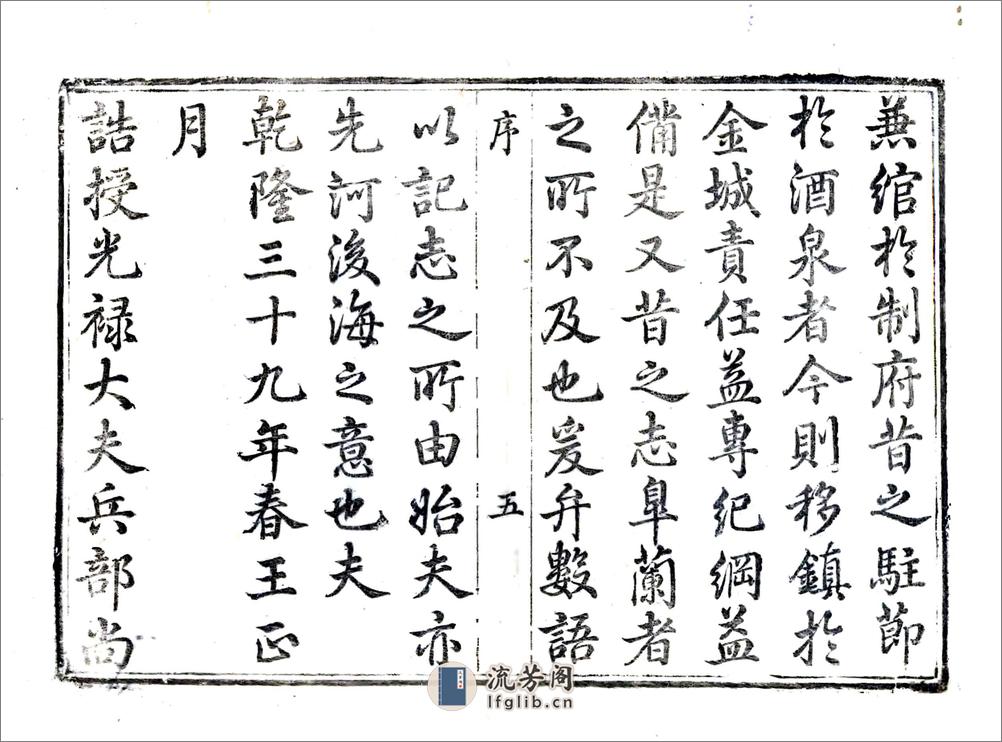 兼綰於制府昔之駐節
於酒泉者今則移鎮於
金城責任益專紀綱益
備是又昔之志皐蘭者
之所不及也爰弁數語
序 五
以記志之所由始夫亦
先河後海之意也夫
乾隆三十九年春王正
月
誥授光禄大夫兵部尚
流芳阁
lfglib.cn